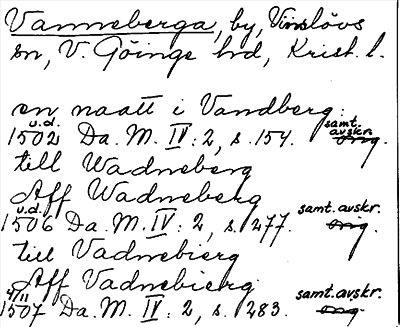 Vanneberga, by, Vinslövs
sn, V. Göinge hd, Krist. l.
en naatt i Vandberg:
u.d. samt. avskr.
1502 Da. M. IV: 2, s. 154. orig.
till Wadneberg
Aff Wadneberg
u.d. samt. avskr.
1506 Da. M. IV: 2, s. 277. orig.
till Vadnebierg
Aff Vadnebierg
4/11 samt. avskr.
1507 Da. M. IV: 2, s. 283. orig.